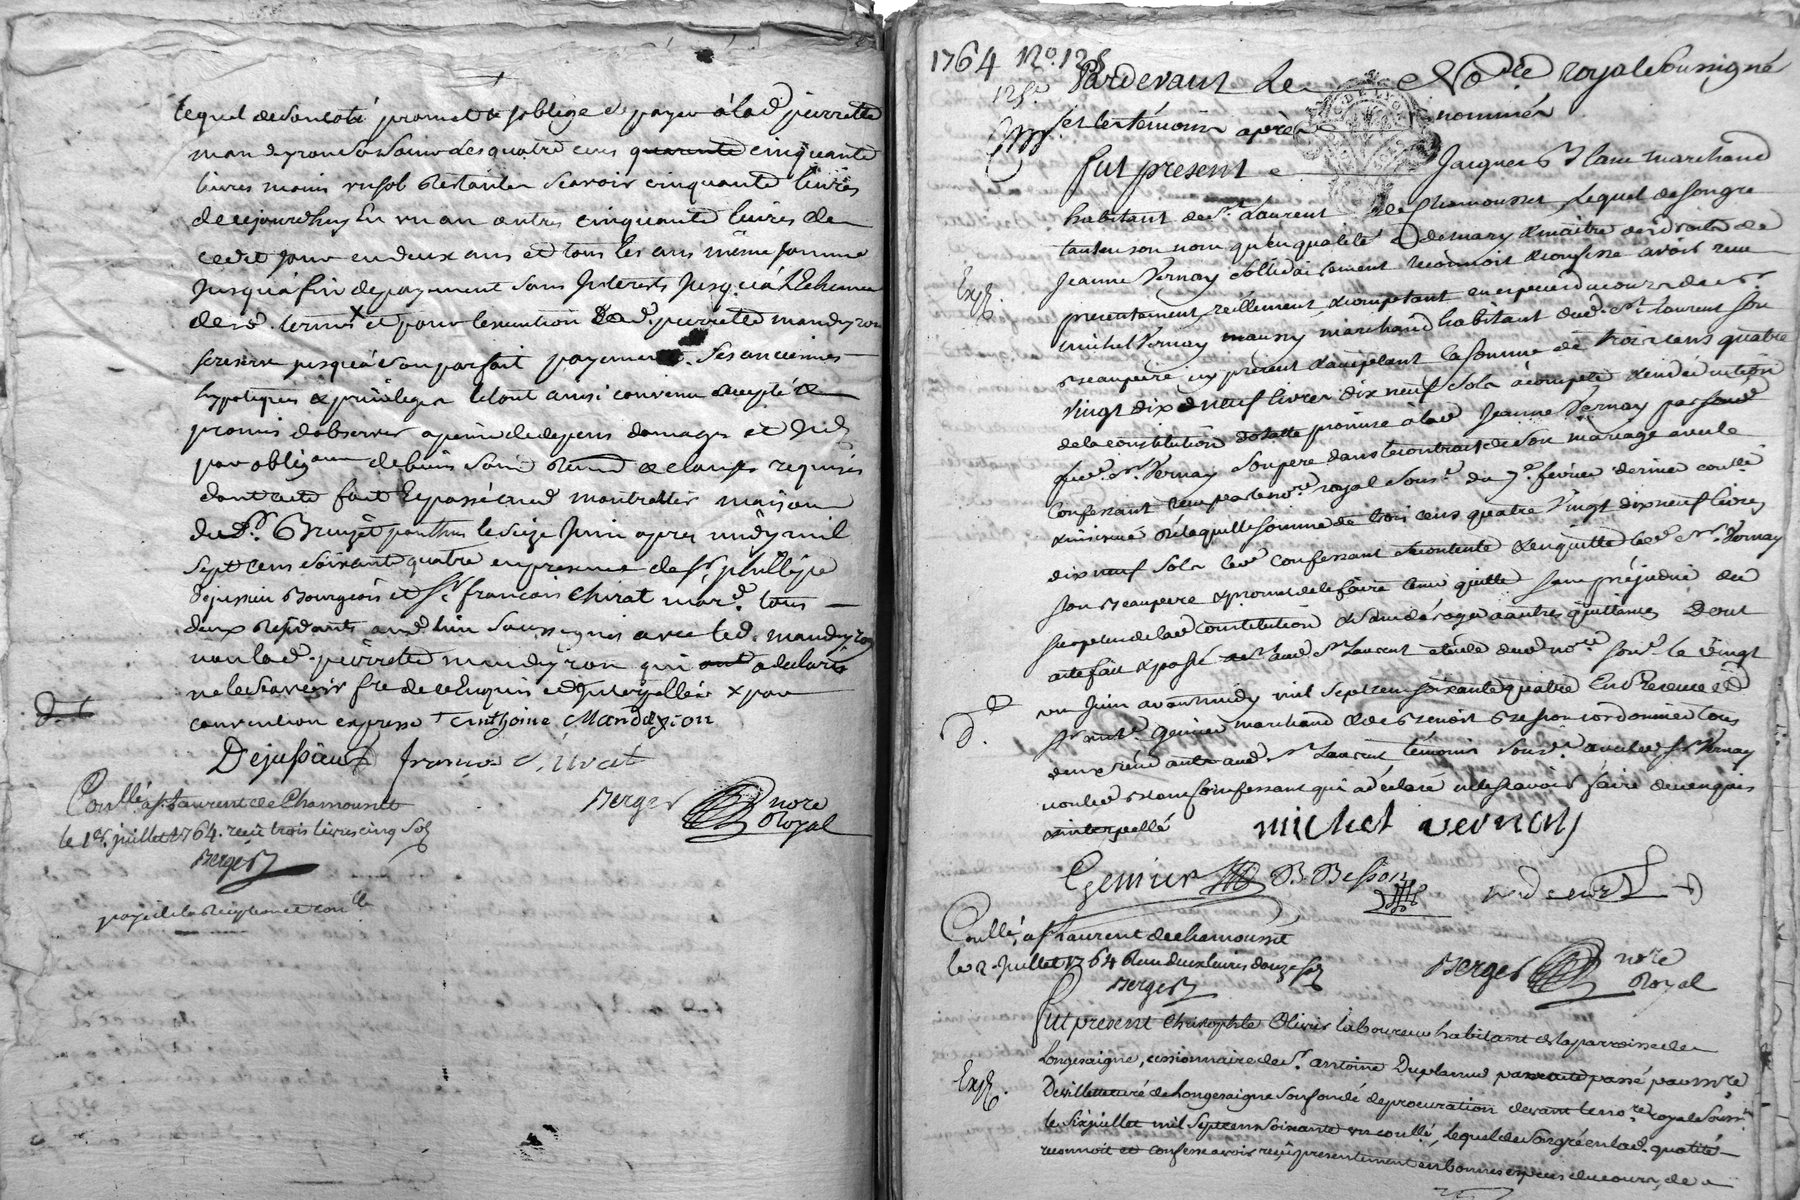 lequel de Son coté promet & soblige de payer à lad. pierrette
mandeyron la Somme des quatre cens quarente cinquante
livres moins un sol restantes Scavoir cinquante livres
de cejourdhuy En un an autres cinquante livres de
cedit jour en deux ans et tous les ans même somme
jusqu'à fin de payement Sans Interests jusqu'à l'Echeance
desd. termes et pour lexecution Lad. pierrette mandeyron
se reserve jusquà Son parfait payement. Ses anciennes
hypoteques & privileges le tout ainsi convenu accepté &
promis dobserver a peine de depens domages et
par obligaon de biens Soum. Renon. & clauses requises
dont acte fait Et passé aud. montrottier maison
du Sr. Bruyet le Seize Juin apres midy mil
Sept cens Soixante quatre en presence de Sr. philippe
Dejussieu Bourgeois et Sr. francois Chirat mard. tous
deux Residants aud. lieu Soussignés avec led. mandeyron
non lad. pierrette mandeyron qui ont a declaré
ne le Scavoir fre de ce Enquis et Interpellée & par
convention expresse Anthoine Mandeyron
Dejussieu francois Chirat
Berger nore
Royal
Conllé a St Laurent de Chamousset
le 1er. juillet 1764. recu trois livres cinq Sols
Berger
1764 No. 125
Pardevant Le Nore. royal Soussigné
et les témoins après nommés
fut present Jacques marchand
habitant de St. Laurent de Chamousset, lequel de Songre
tant en son nom qu'en qualité de mary & maitre des droits de
Expé.
Jeanne Vernay Sollidairement reconnoit & confesse avoir reçu
presentament, réellement & comptant en especes du cours de Sr.
michel Vernay marchand habitant dud. St. Laurent Son
Beaupere icy present & acceptant la Somme de trois cens quatre
Vingt dix neuf livres dix neuf Sols à compte & en déduction
de la constitution dotalle promise à lad. Jeanne Vernay par
led. Sr. Vernay Son pere dans le contrat de Son mariage avec le
Confessant reçu par le nore. royal Sous.é du 7e. fevrier dernier conllé
& insinué De laquelle Somme de trois cens quatre Vingt dix neuf livres
dix neuf Sols led. confessant Se contente & en quitte led. Sr. Vernay
Son Beaupere & promet le faire tenir quitte Sans préjudice du
Surplus de lad. Constitution & Sans déroger a autres quittances Dont
acte fait & passé aud. St. Laurent étude dud. nore. Sous.é le vingt
un Juin avant midy mil Sept cens soixante quatre En Presence de
Sr. Genier marchand & de Benoit Besson cordonnier tous
deux résidants aud. St. Laurent témoins Sous.és avec led. Sr. Vernay
non led. confessant qui a déclaré ne le Scavoir faire de ce enquis
& interpellé michel vernay
Genier B. Besson
Conllé, a St Laurent de chamousset
le 2. Juillet 1764 Reçu deux livres douze Sols
Berger
Berger nore
Royal
Fut present Christophle Olivier laboureur habitant de la parroisse de
Longesaigne, cessionnaire de Sr. antoine Duplanil par acte passé par
Expé.
de Longesaigne Son fondé de procuration devant le nore. royal Souss.é
le Six juillet mil Sept cens Soixante un conllé, Lequel de Son gré en lad. qualité
reconnoit et confesse avoir reçu presentement en bonnes especes du cours, de